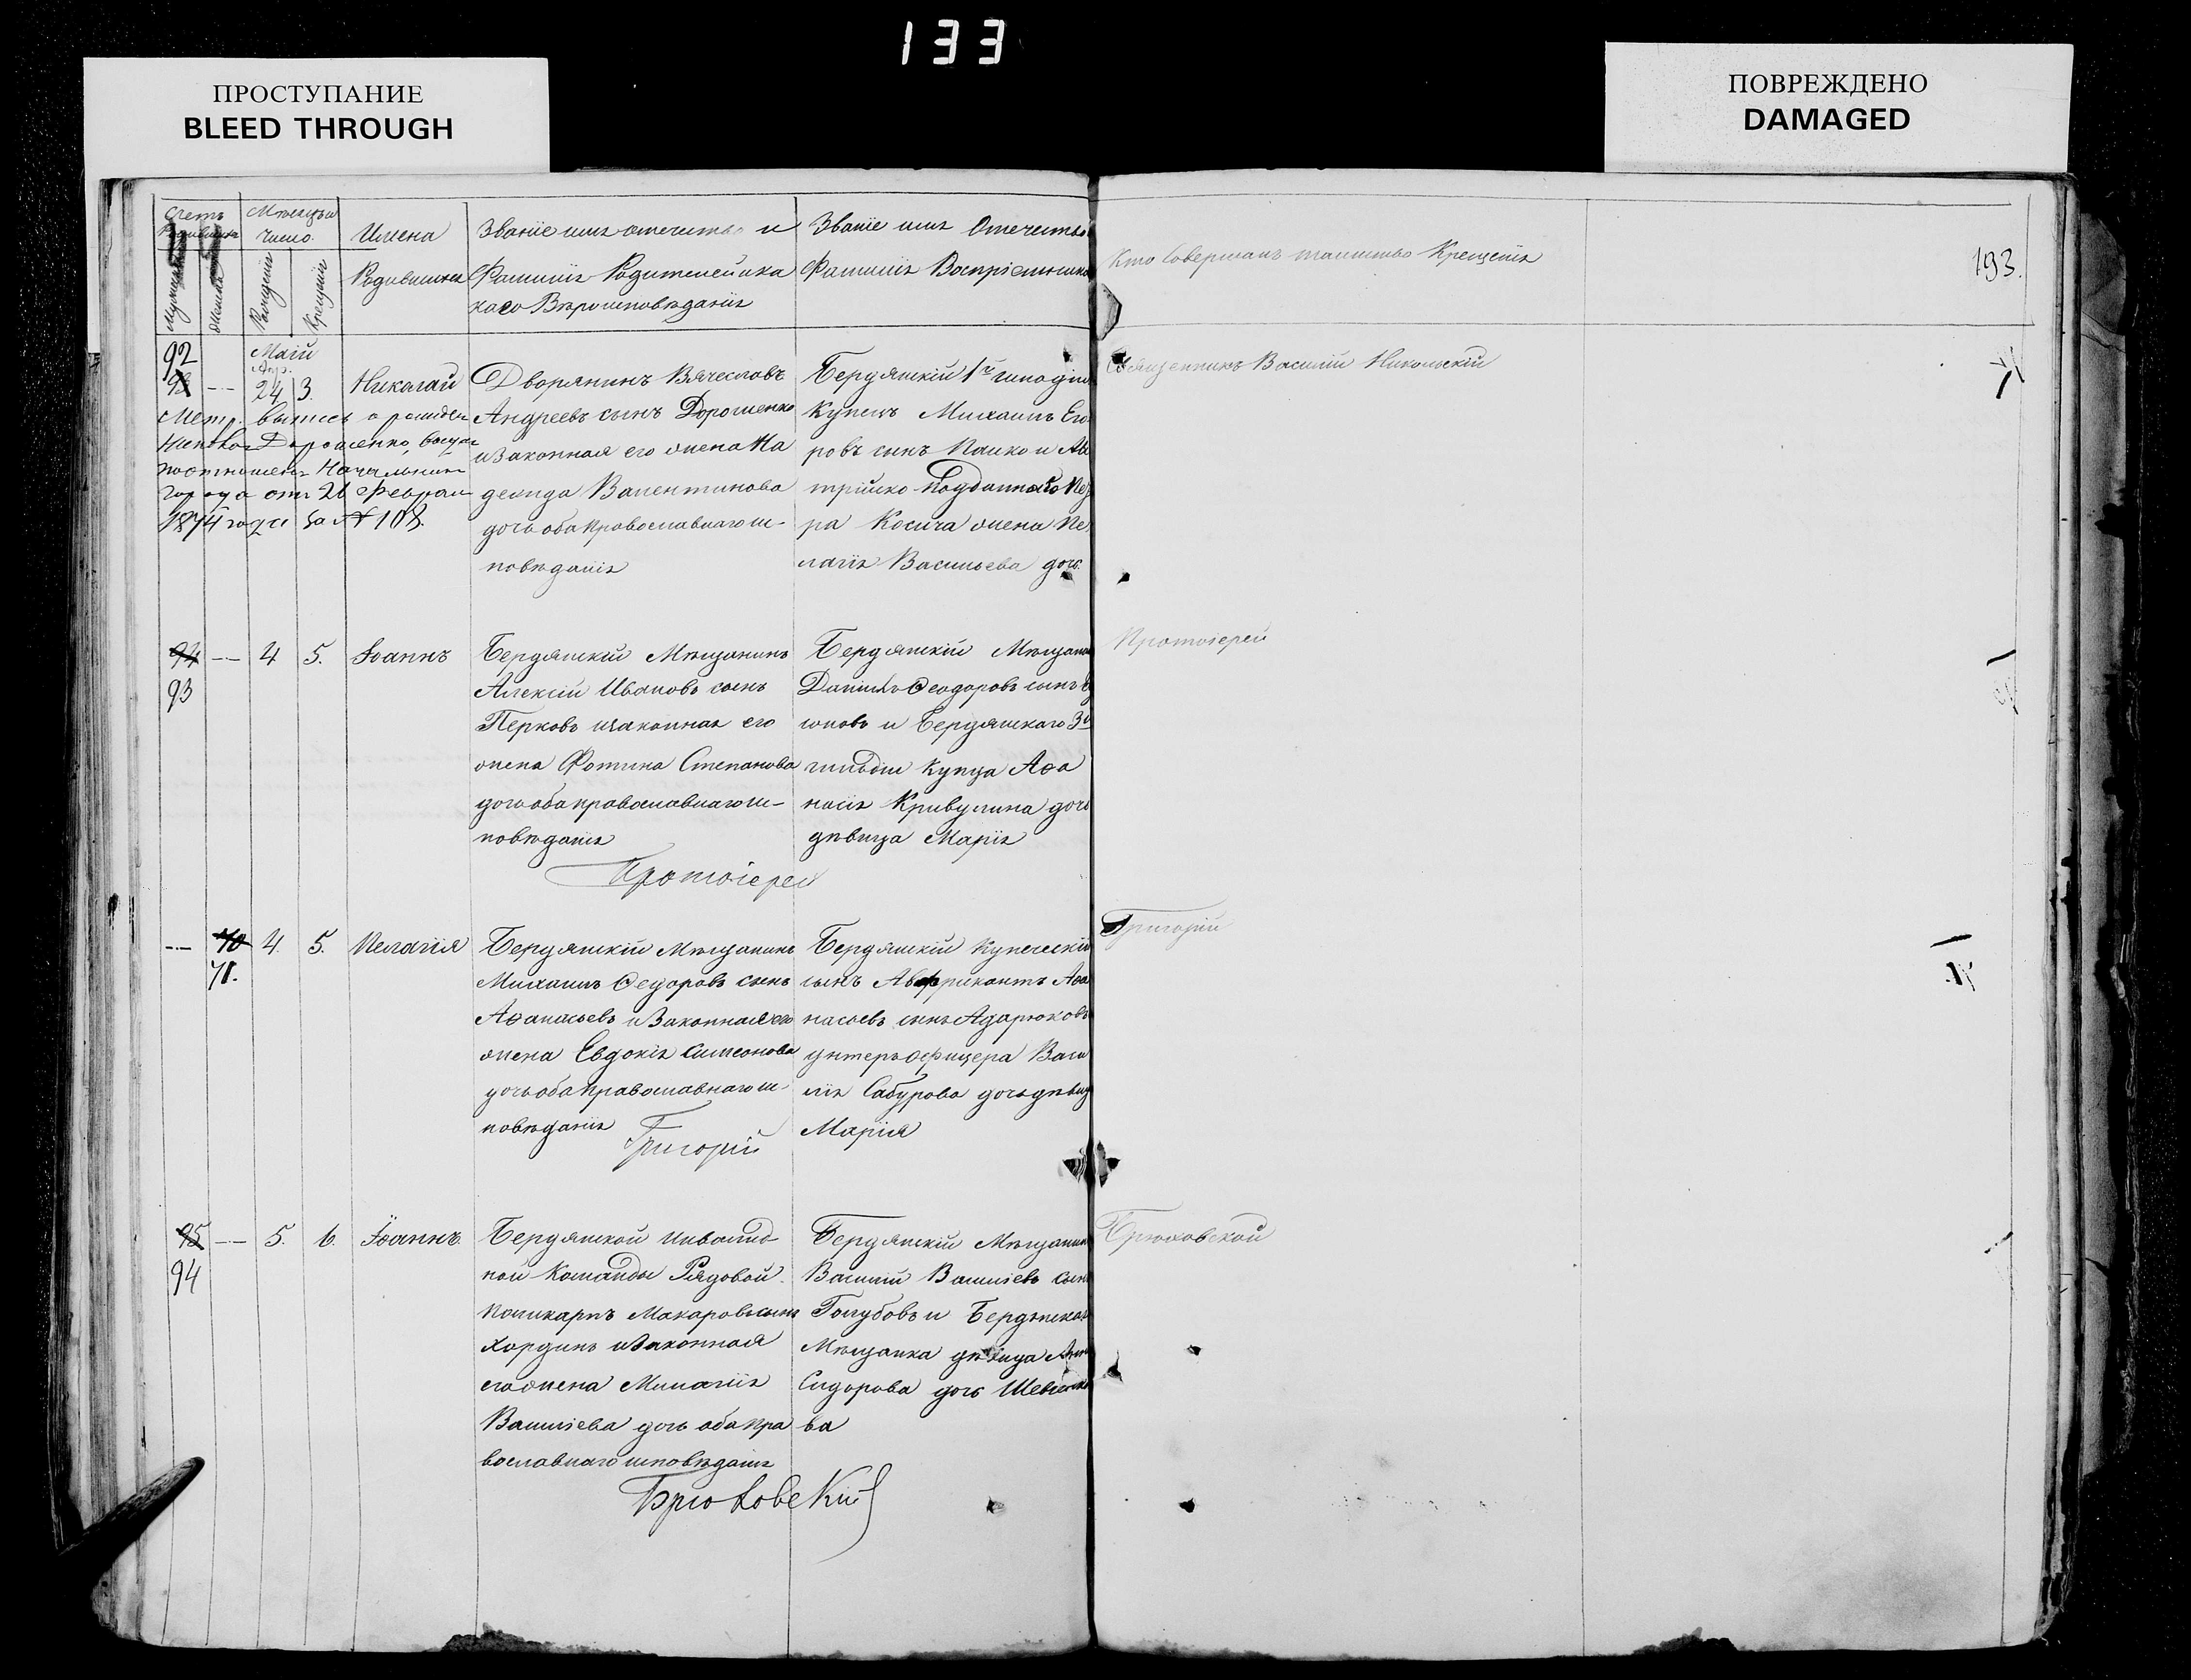 133
ПРОСТУПАНИЕ
BLEED THROUGH
ПОВРЕЖДЕНО
DAMAGED
Счетъ Родившихся
Мѣсяцъ и число.
Мужескъ
Женскъ
Рожденія
Крещенія
Имена
Родившихся
Званіе имя отчество и
Фамилія Родителей и ка
каго Вѣроисповѣданія
Званіе имя Отечество
Фамилія Воспріемника
Кто Совершалъ таинство Крещенія
193.
92
Маій
Апр.
-- 24 3. Николай
Метр. выпись о рожден
Дорошенко,
Начальника
Города отъ 26 Феврал
1874 года за № 108.
Дворянинъ Вячеславъ
Андреевъ сынъ Дорошенко
и Законная его жена На
дежда Валентинова
дочь оба православнаго ис-
повѣданія
Бердянскій 1й гильдіи
Купецъ Михаилъ Его
ровъ сынъ Панко и Ав
трійско-подданнаго Пет
ра Косича жена Пе
лагія Васильева дочь
Священникъ Василій Никольскій
94 -- 4 5. Іоаннъ
93
Бердянскій Мѣщанинъ
Алексій Ивановъ сынъ
Перковъ изаконная его
жена Фотина Степанова
дочь оба православнаго ис-
повѣданія
Протоіерей
Бердянскій Мѣщанин
Даніилъ Ѳеодоровъ сынъ
юновъ и Бердянскаго 3й
гильдіи Купца Аѳа
насія Кривулина дочь
дѣвица Марія
Протоіерей
-- 70 4. 5. Пелагія
71.
Бердянскій Мѣщанинъ
Михаилъ Ѳедоровъ сынъ
Аѳанасьевъ и Законная его
жена Евдокія Симеонова
дочь оба православнаго ис-
повѣданія
Григорій
Бердянскій Купеческій
сынъ Аффрикантъ Аѳа
насьевъ сынъ Адарюковъ
унтеръ-офицера Васи
лія Сабурова дочь дѣвиц
Марія
Григорій
95 -- 5. 6. Іоаннъ.
94
Бердянской Инвалид
ной Команды Рядовой
Поликарпъ Макаровъ сынъ
Хординъ и Законная
его жена Милагія
Василіева дочь оба пра
вославнаго исповѣданія
Брюховскій
Бердянскій Мѣщанин
Василій Василіевъ сын
Голубовъ и Бердянская
Мѣщанка дѣвица Анн
Сидорова дочь Шевченко
ва
Брюховской